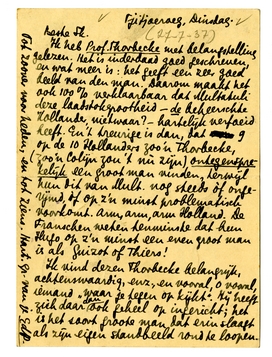 Tjitjaroeg, Dinsdag.
(27-7-37)
Beste Fr.
Ik heb Prof. Thorbecke met belangstelling
gelezen. Het is inderdaad goed geschreven,
en wat meer is: het geeft een zeer goed
beeld van den man. Daarom maakt het
ook 100% verklaarbaar dat Multatuli
deze laatste grootheid – de beheerschte
Hollander, nietwaar? – hartelijk verfoeid
heeft. En 't treurige is dan, dat 9
op de 10 Hollanders zoo'n Thorbecke,
(zoo'n Colijn zou 't nu zijn) ontegenspre-
kelijk een groot man vinden, terwijl
hun dit van Mult. nog steeds of onge-
rijmd, of op z'n minst problematisch
voorkomt. Arm, arm, arm Holland. De
Franschen weten tenminste dat een
Hugo op z'n minst een even groot man
is als Guizot of Thiers!
Ik vind dezen Thorbecke belangrijk,
achtenswaardig, enz., en vooral, o vooral,
iemand "waar je tegen op kijkt". Hij heeft
zich daar dan ook geheel op ingericht; het
is het soort groote man, dat erin slaagt
als zijn eigen standbeeld rond te loopen.
Tot zoover voor heden, en tot ziens. Hart. gr. van je